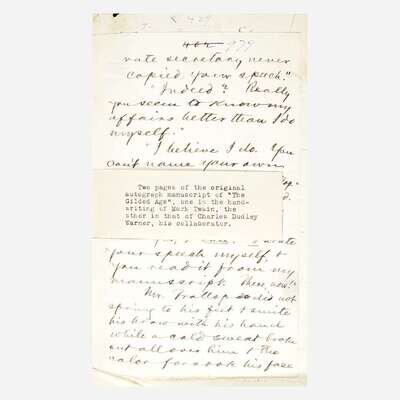 979
vate secretary never
copied your speech."
"Indeed? Really
you seem to know my
affairs better than I do
myself."
"I believe I do. You
can't name your own
Two pages of the original
autograph manuscript of "The
Gilded Age", one in the hand-
writing of Mark Twain, the
other in that of Charles Dudley
Warner, his collaborator.
your speech myself, &
you read it from my
manuscript. There, now!"
Mr. Trollop did not
spring to his feet & smite
his brow with his hand
while a cold sweat broke
out all over him & the
color forsook his face